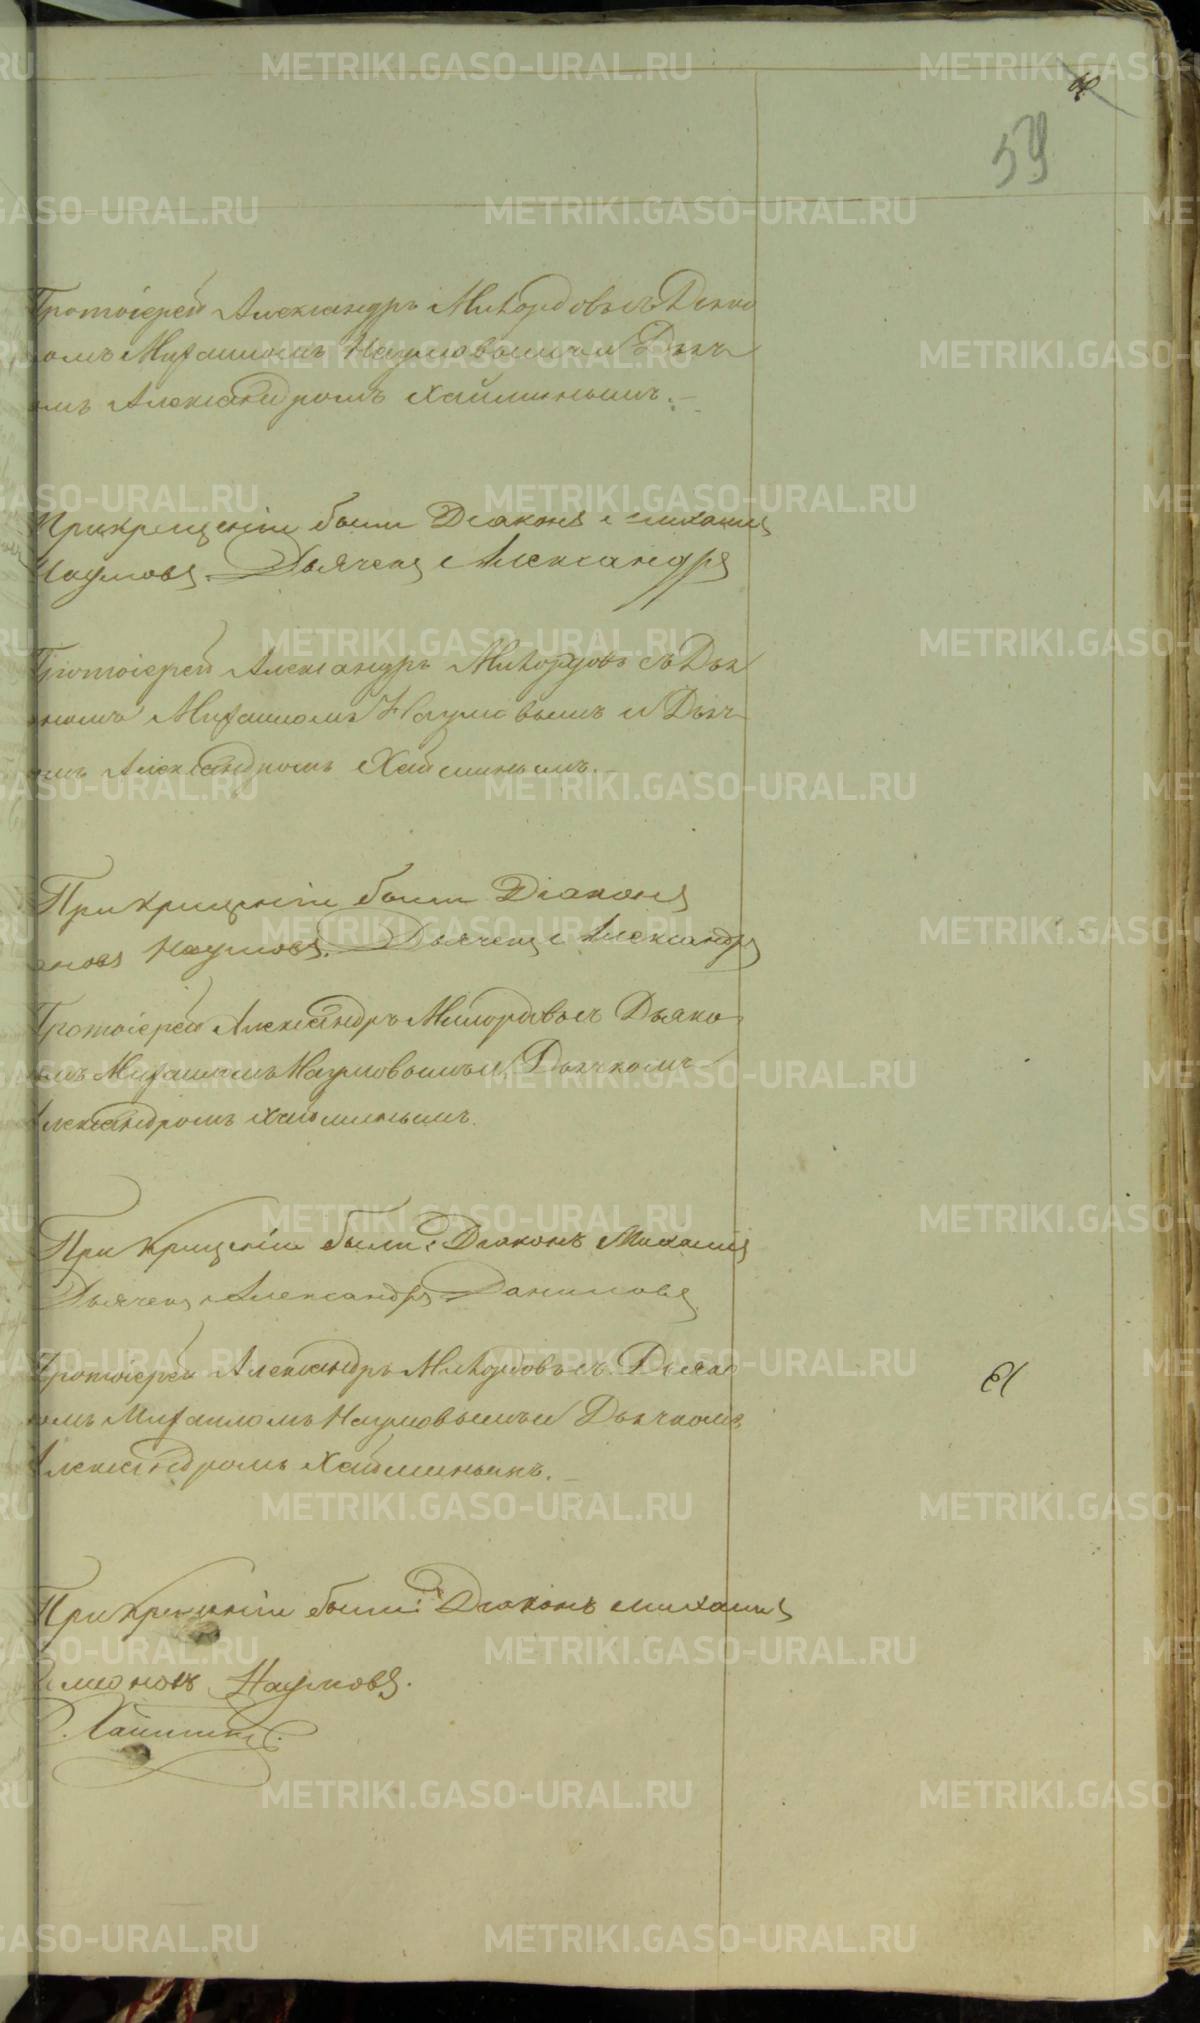 59
Протоіерей Александръ Милордовъ съ Діяко
омъ Михаиломъ Наумовымъ и Дьяч
омъ Александромъ Хайминымъ.
При крещеніи были Діаконъ Михаилъ
Наумовъ. Дьячекъ Александръ
Протоіерей Александръ Милордовъ съ Дья
номъ Михаиломъ Наумовымъ и Дьяч
омъ Александромъ Хайминымъ.
При крещеніи были Діаконъ
Наумовъ. Дьячекъ Александръ
Протоіерей Александръ Милордовъ съ Дьяко
омъ Михаиломъ Наумовымъ и Дьячкомъ
Александромъ Хайминымъ.
При крещеніи были: Діаконъ Михаилъ
Дьячекъ Александръ
Протоіерей Александръ Милордовъ съ Дьяко
омъ Михаиломъ Наумовымъ и Дьячкомъ
Александромъ Хайминымъ.
При крещеніи были: Діаконъ Михаилъ
Наумовъ.
Хайминъ.
METRIKI.GASO-URAL.RU